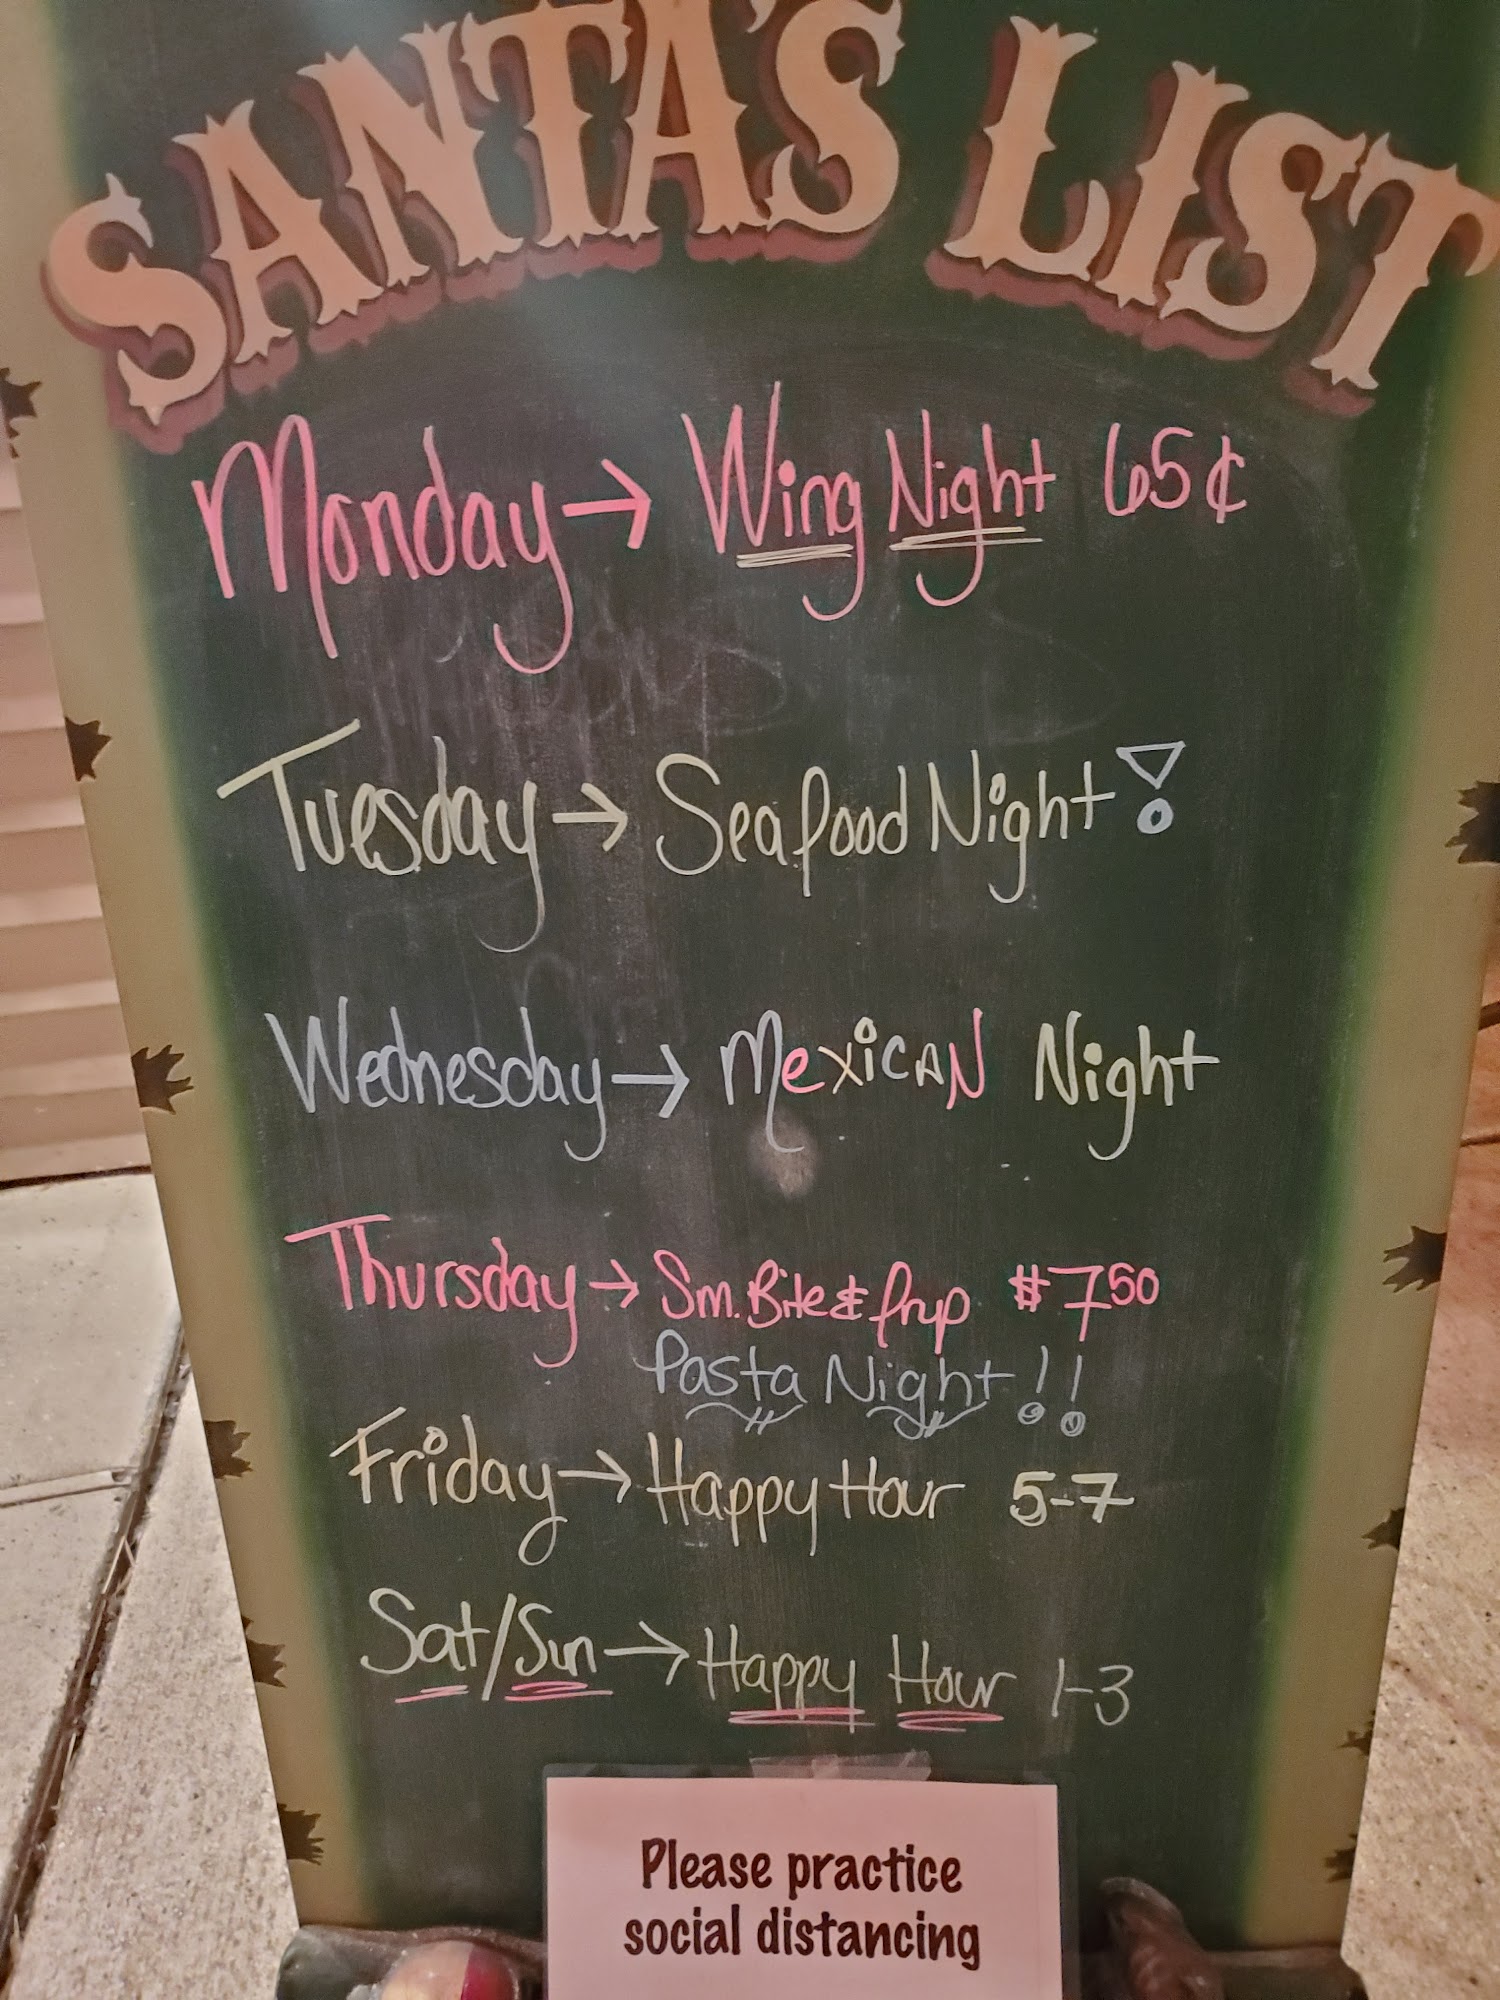 SANTA'S LIST
Monday → Wing Night 65¢
Tuesday → Seafood Night!
Wednesday → MexicAN Night
Thursday → Sm. Bite & $7⁵⁰
Pasta Night!!
Friday → Happy Hour 5-7
Sat/Sun → Happy Hour 1-3
Please practice
social distancing